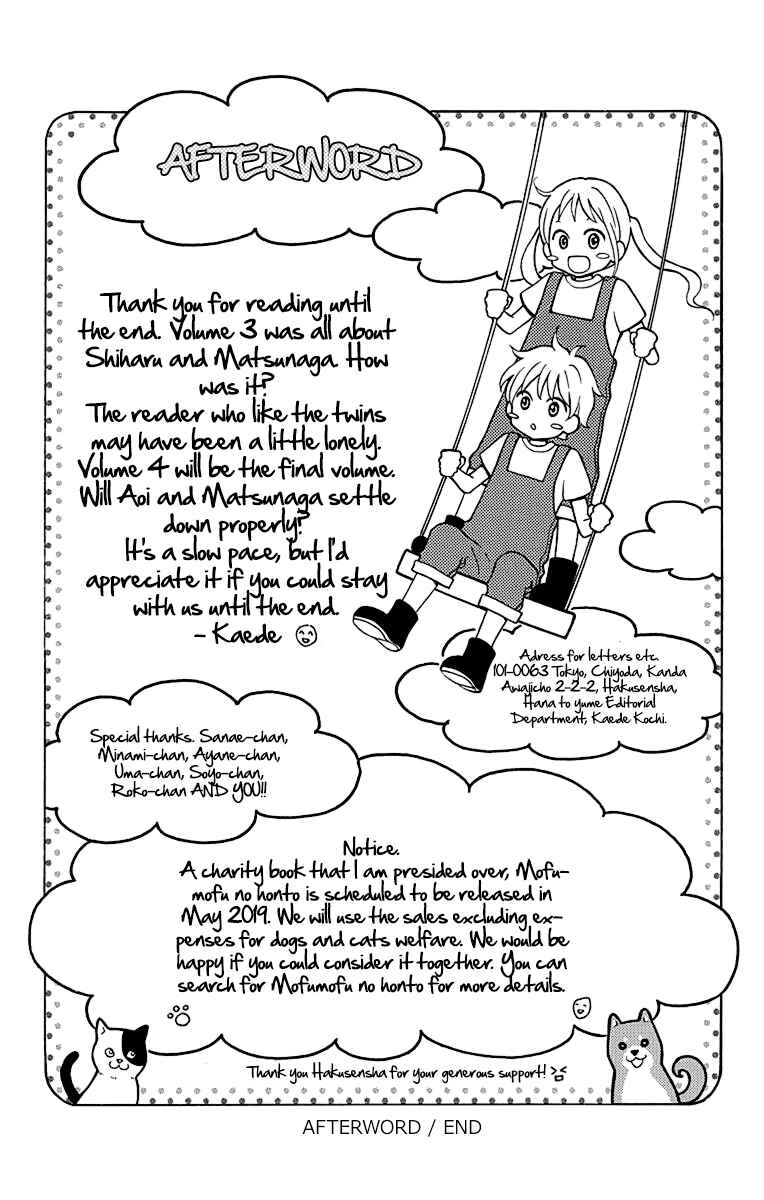 AFTERWORD
Thank you for reading until
the end. Volume 3 was all about
Shiharu and Matsunaga. How
was it?
The reader who like the twins
may have been a little lonely.
Volume 4 will be the final volume.
Will Aoi and Matsunaga settle
down properly?
It's a slow pace, but I'd
appreciate it if you could stay
with us until the end.
- Kaede
Adress for letters etc.
101-0063 Tokyo, Chiyoda, Kanda
Awajicho 2-2-2, Hakusensha,
Hana to yume Editorial
Department, Kaede Kochi.
Special thanks. Sanae-chan,
Minami-chan, Ayane-chan,
Uma-chan, Soyo-chan,
Roko-chan AND YOU!!
Notice.
A charity book that I am presided over, Mofu-
mofu no honto is scheduled to be released in
May 2019. We will use the sales excluding ex-
penses for dogs and cats welfare. We would be
happy if you could consider it together. You can
search for Mofumofu no honto for more details.
Thank you Hakusensha for your generous support!
AFTERWORD / END